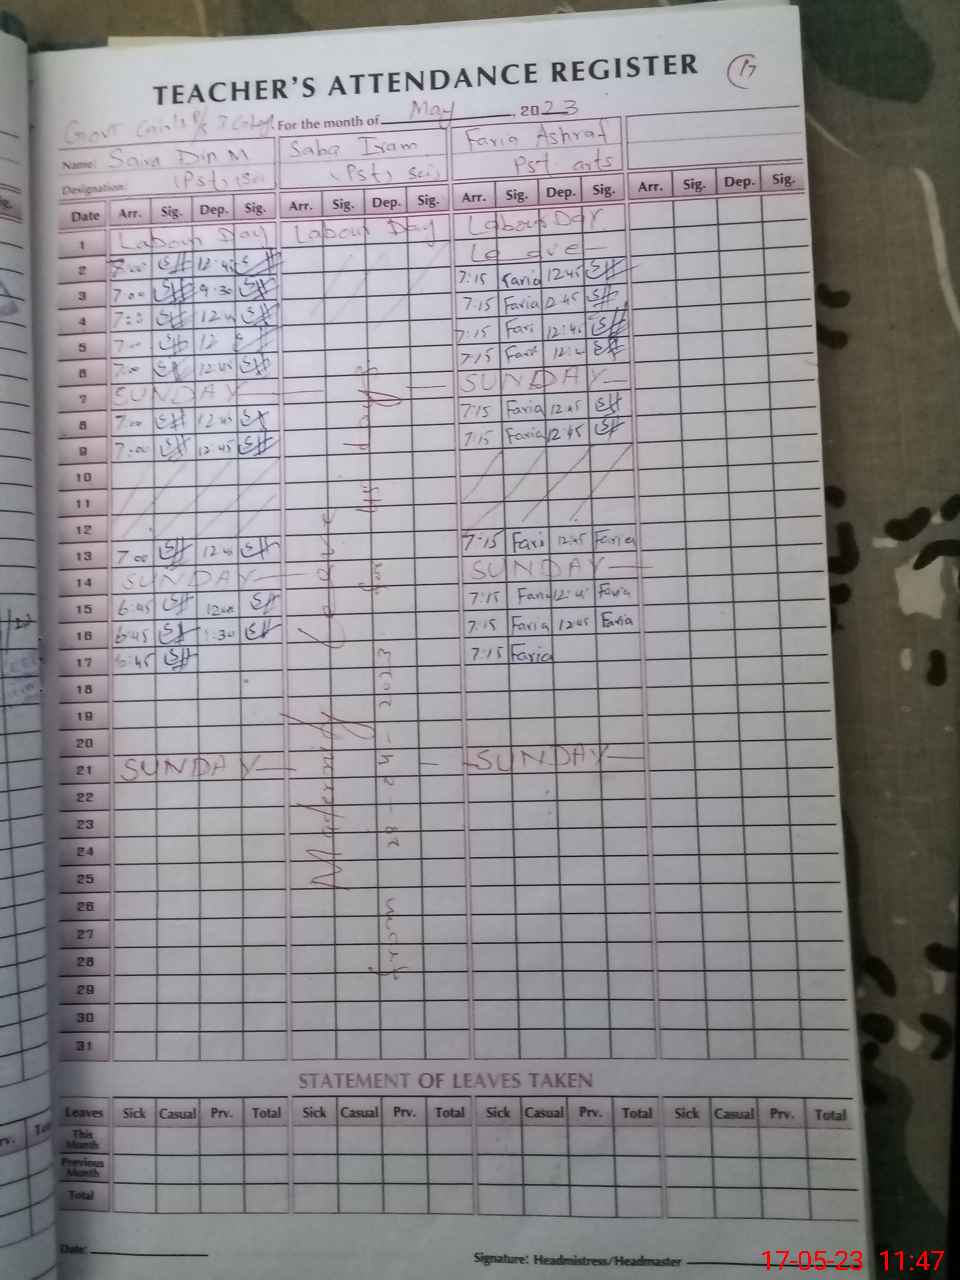 TEACHER'S ATTENDANCE REGISTER
17
Govt
For the month of May, 2023
Name: Saira Din M Saba Iram Faria Ashraf
Designation: (Pst) (Sci (Pst) Sci) Pst arts
Date Arr. Sig. Dep. Sig. Arr. Sig. Dep. Sig. Arr. Sig. Dep. Sig. Arr. Sig. Dep. Sig.
1 Labour Day Labour Day Labour Day
2 7:00 12:45 Leave
3 7:00 9:30 7:15 Faria 12:45
4 7:15 Faria 12:45
5 7:00 12 7:15 Fari 12:45
6 7:00 12:45 7:15
7 SUNDAY SUNDAY
8 7:00 12:45 7:15 Faria 12:45
9 7:00 12:45 7:15 Faria 12:45
10
11
12
13 7:00 7:15 Fari 12:45 Faria
14 SUNDAY SUNDAY
15 6:45 7:15 Faria
16 6:45 1:30 7:15 Faria 12:45 Faria
17 6:45 7:15 Faria
18
19
20
21 SUNDAY SUNDAY
22
23
24
25
26
27
28
29
30
31
Maternity Leave
from 28-04-2023 for 45 days
STATEMENT OF LEAVES TAKEN
Leaves Sick Casual Prv. Total Sick Casual Prv. Total Sick Casual Prv. Total Sick Casual Prv. Total
This Month
Previous Month
Total
Date:
Signature: Headmistress/Headmaster
17-05-23 11:47